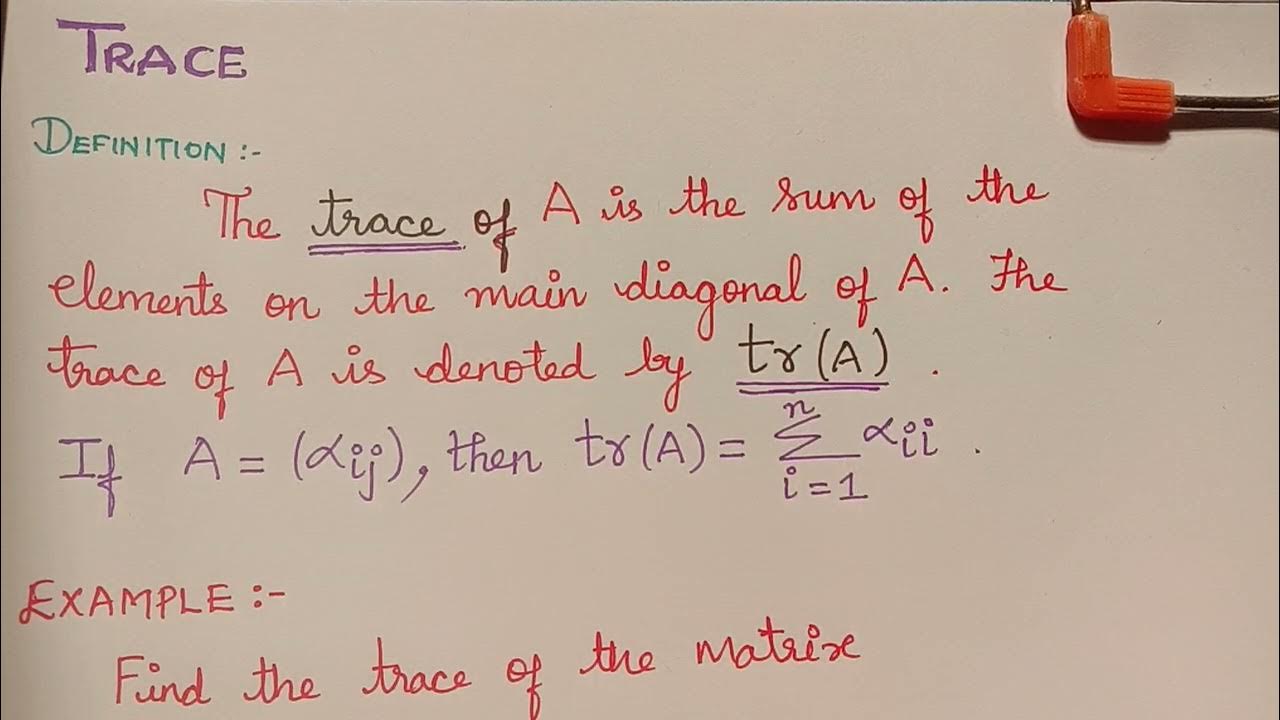 TRACE
DEFINITION :-
The trace of A is the sum of the
elements on the main diagonal of A. The
trace of A is denoted by tr(A) .
If A = (αij), then tr(A) = n∑i=1 αii .
EXAMPLE :-
Find the trace of the matrix